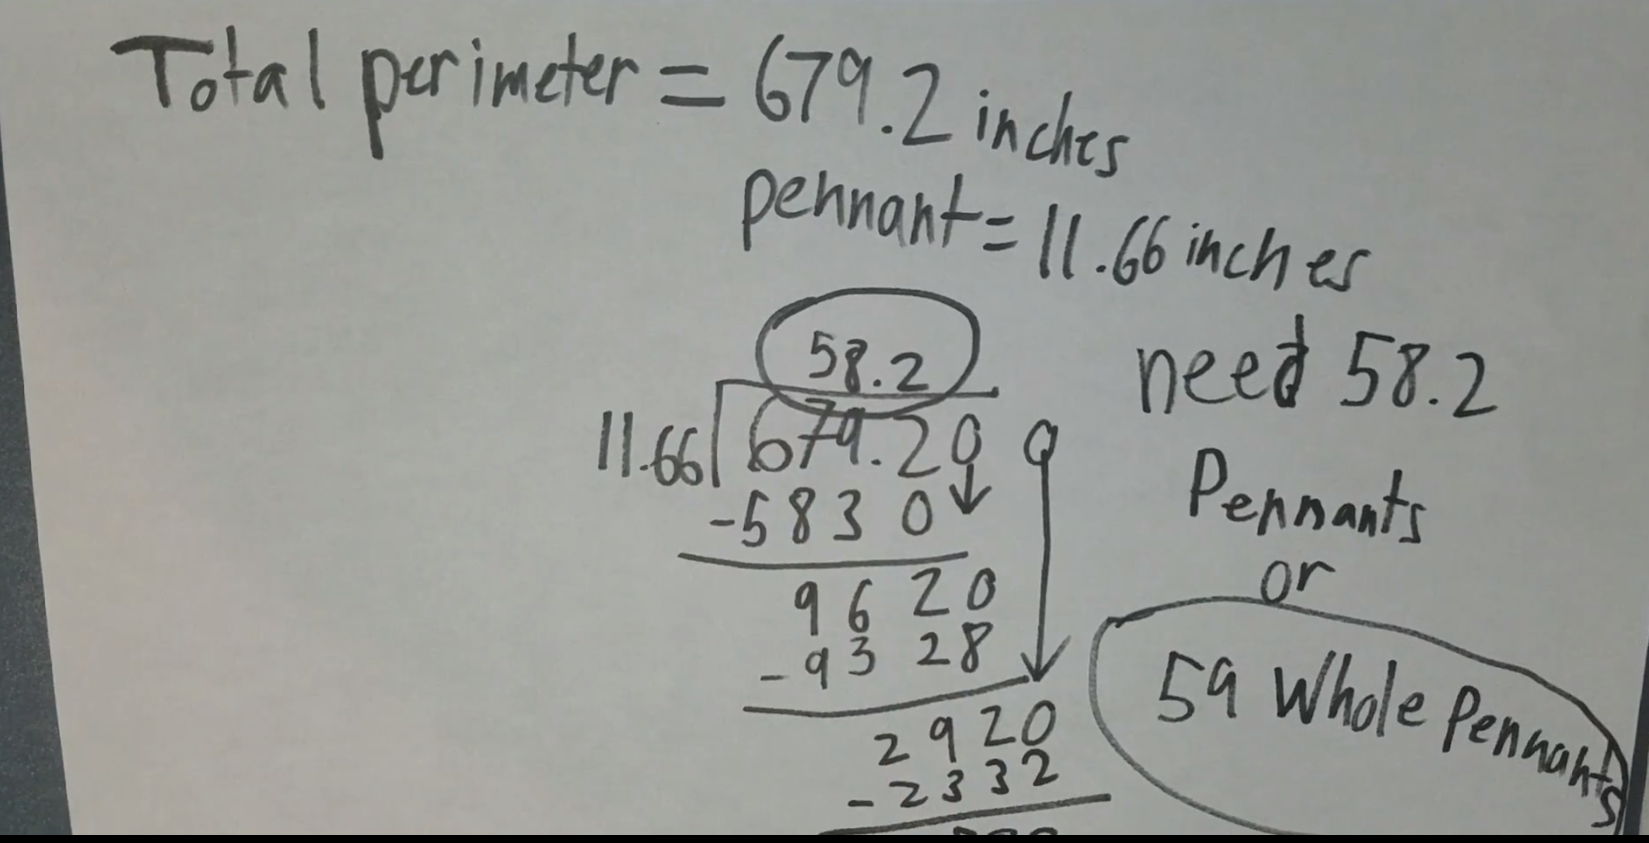 Total perimeter = 679.2 inches
pennant = 11.66 inches
58.2
11.66 679.20 0
-5830
9620
-9328
2920
-2332
need 58.2
Pennants
or
59 Whole Pennants